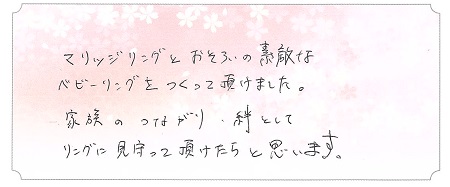 マリッジリングとおそろいの素敵な
ベビーリングをつくって頂けました。
家族のつながり・絆として
リングに見守って頂けたらと思います。